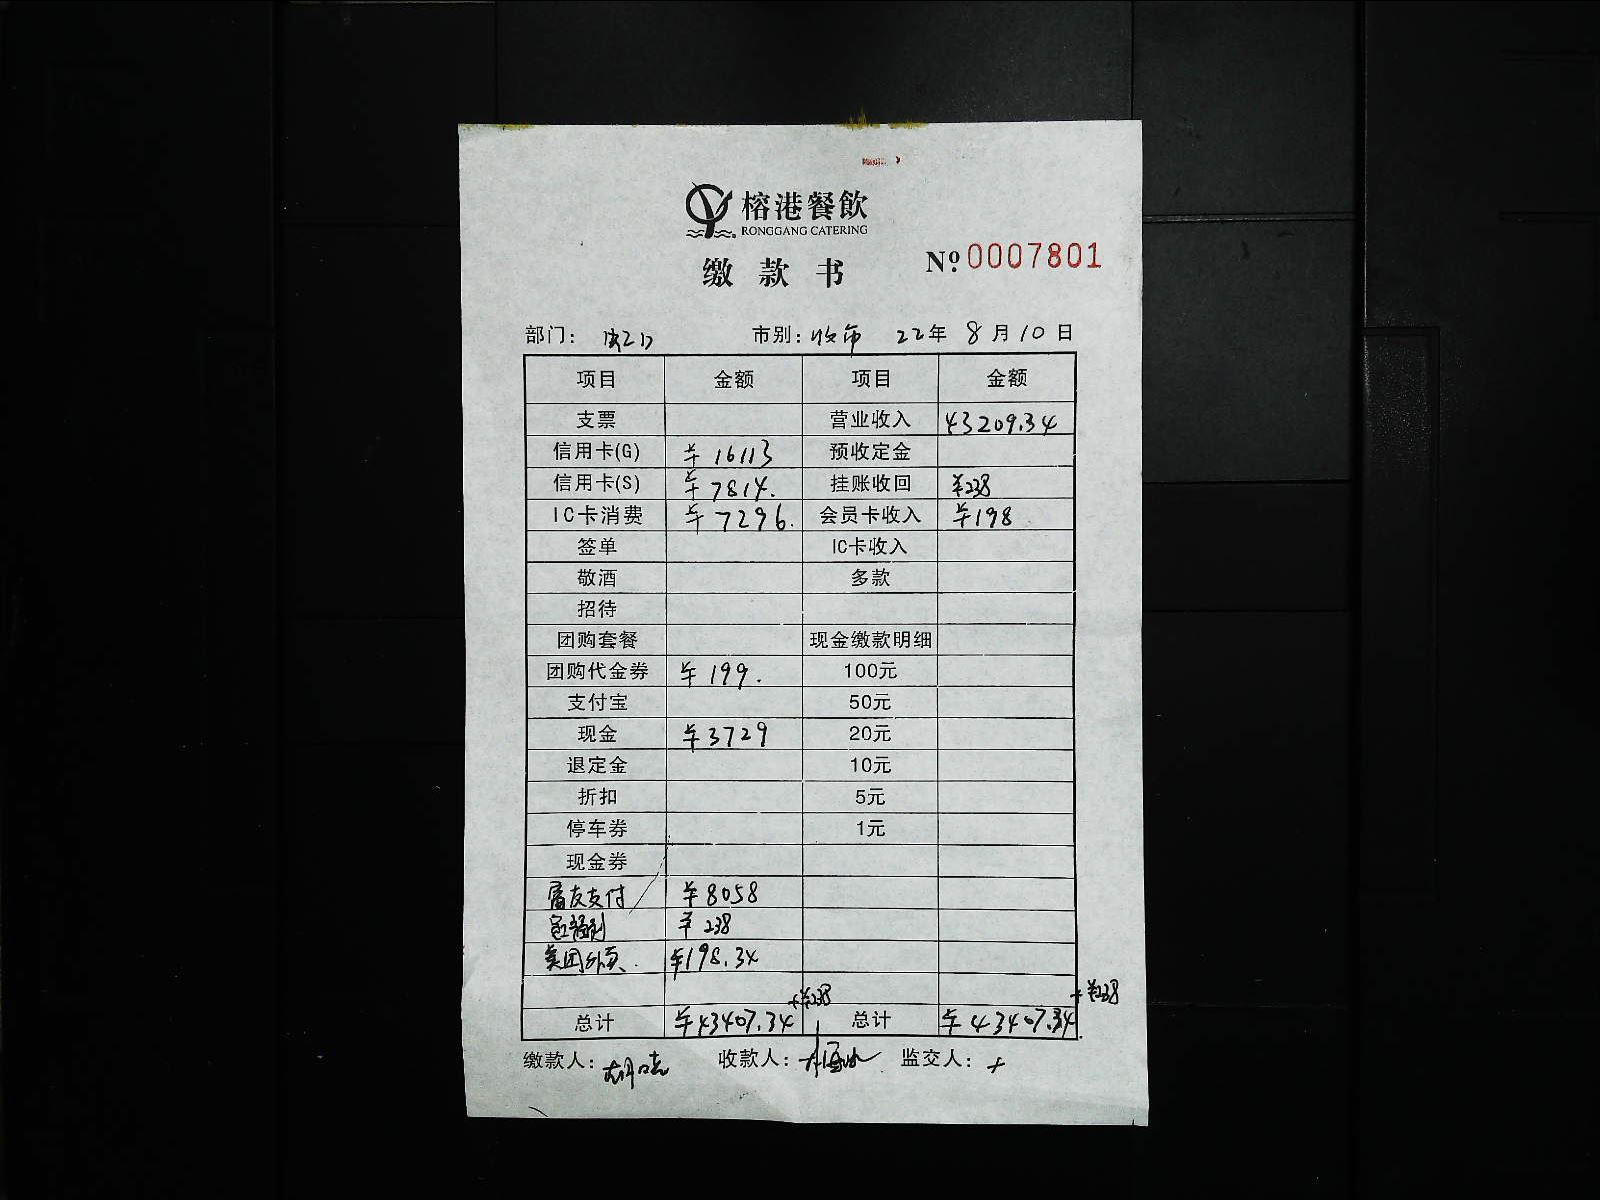 榕港餐飲
RONGGANG CATERING
缴款书 Nº 0007801
部门： 市别：收市 22年8月10日
项目 金额 项目 金额
支票 营业收入 43209.34
信用卡(G) ¥16113 预收定金
信用卡(S) ¥7814. 挂账收回 ¥238
IC卡消费 ¥7296. 会员卡收入 ¥198
签单 IC卡收入
敬酒 多款
招待
团购套餐 现金缴款明细
团购代金券 ¥199. 100元
支付宝 50元
现金 ¥3729 20元
退定金 10元
折扣 5元
停车券 1元
现金券
富友支付 ¥8058
¥238
美团外卖. ¥198.34
+¥238 +¥238
总计 ¥43407.34 总计 ¥43407.34
缴款人： 收款人： 监交人：